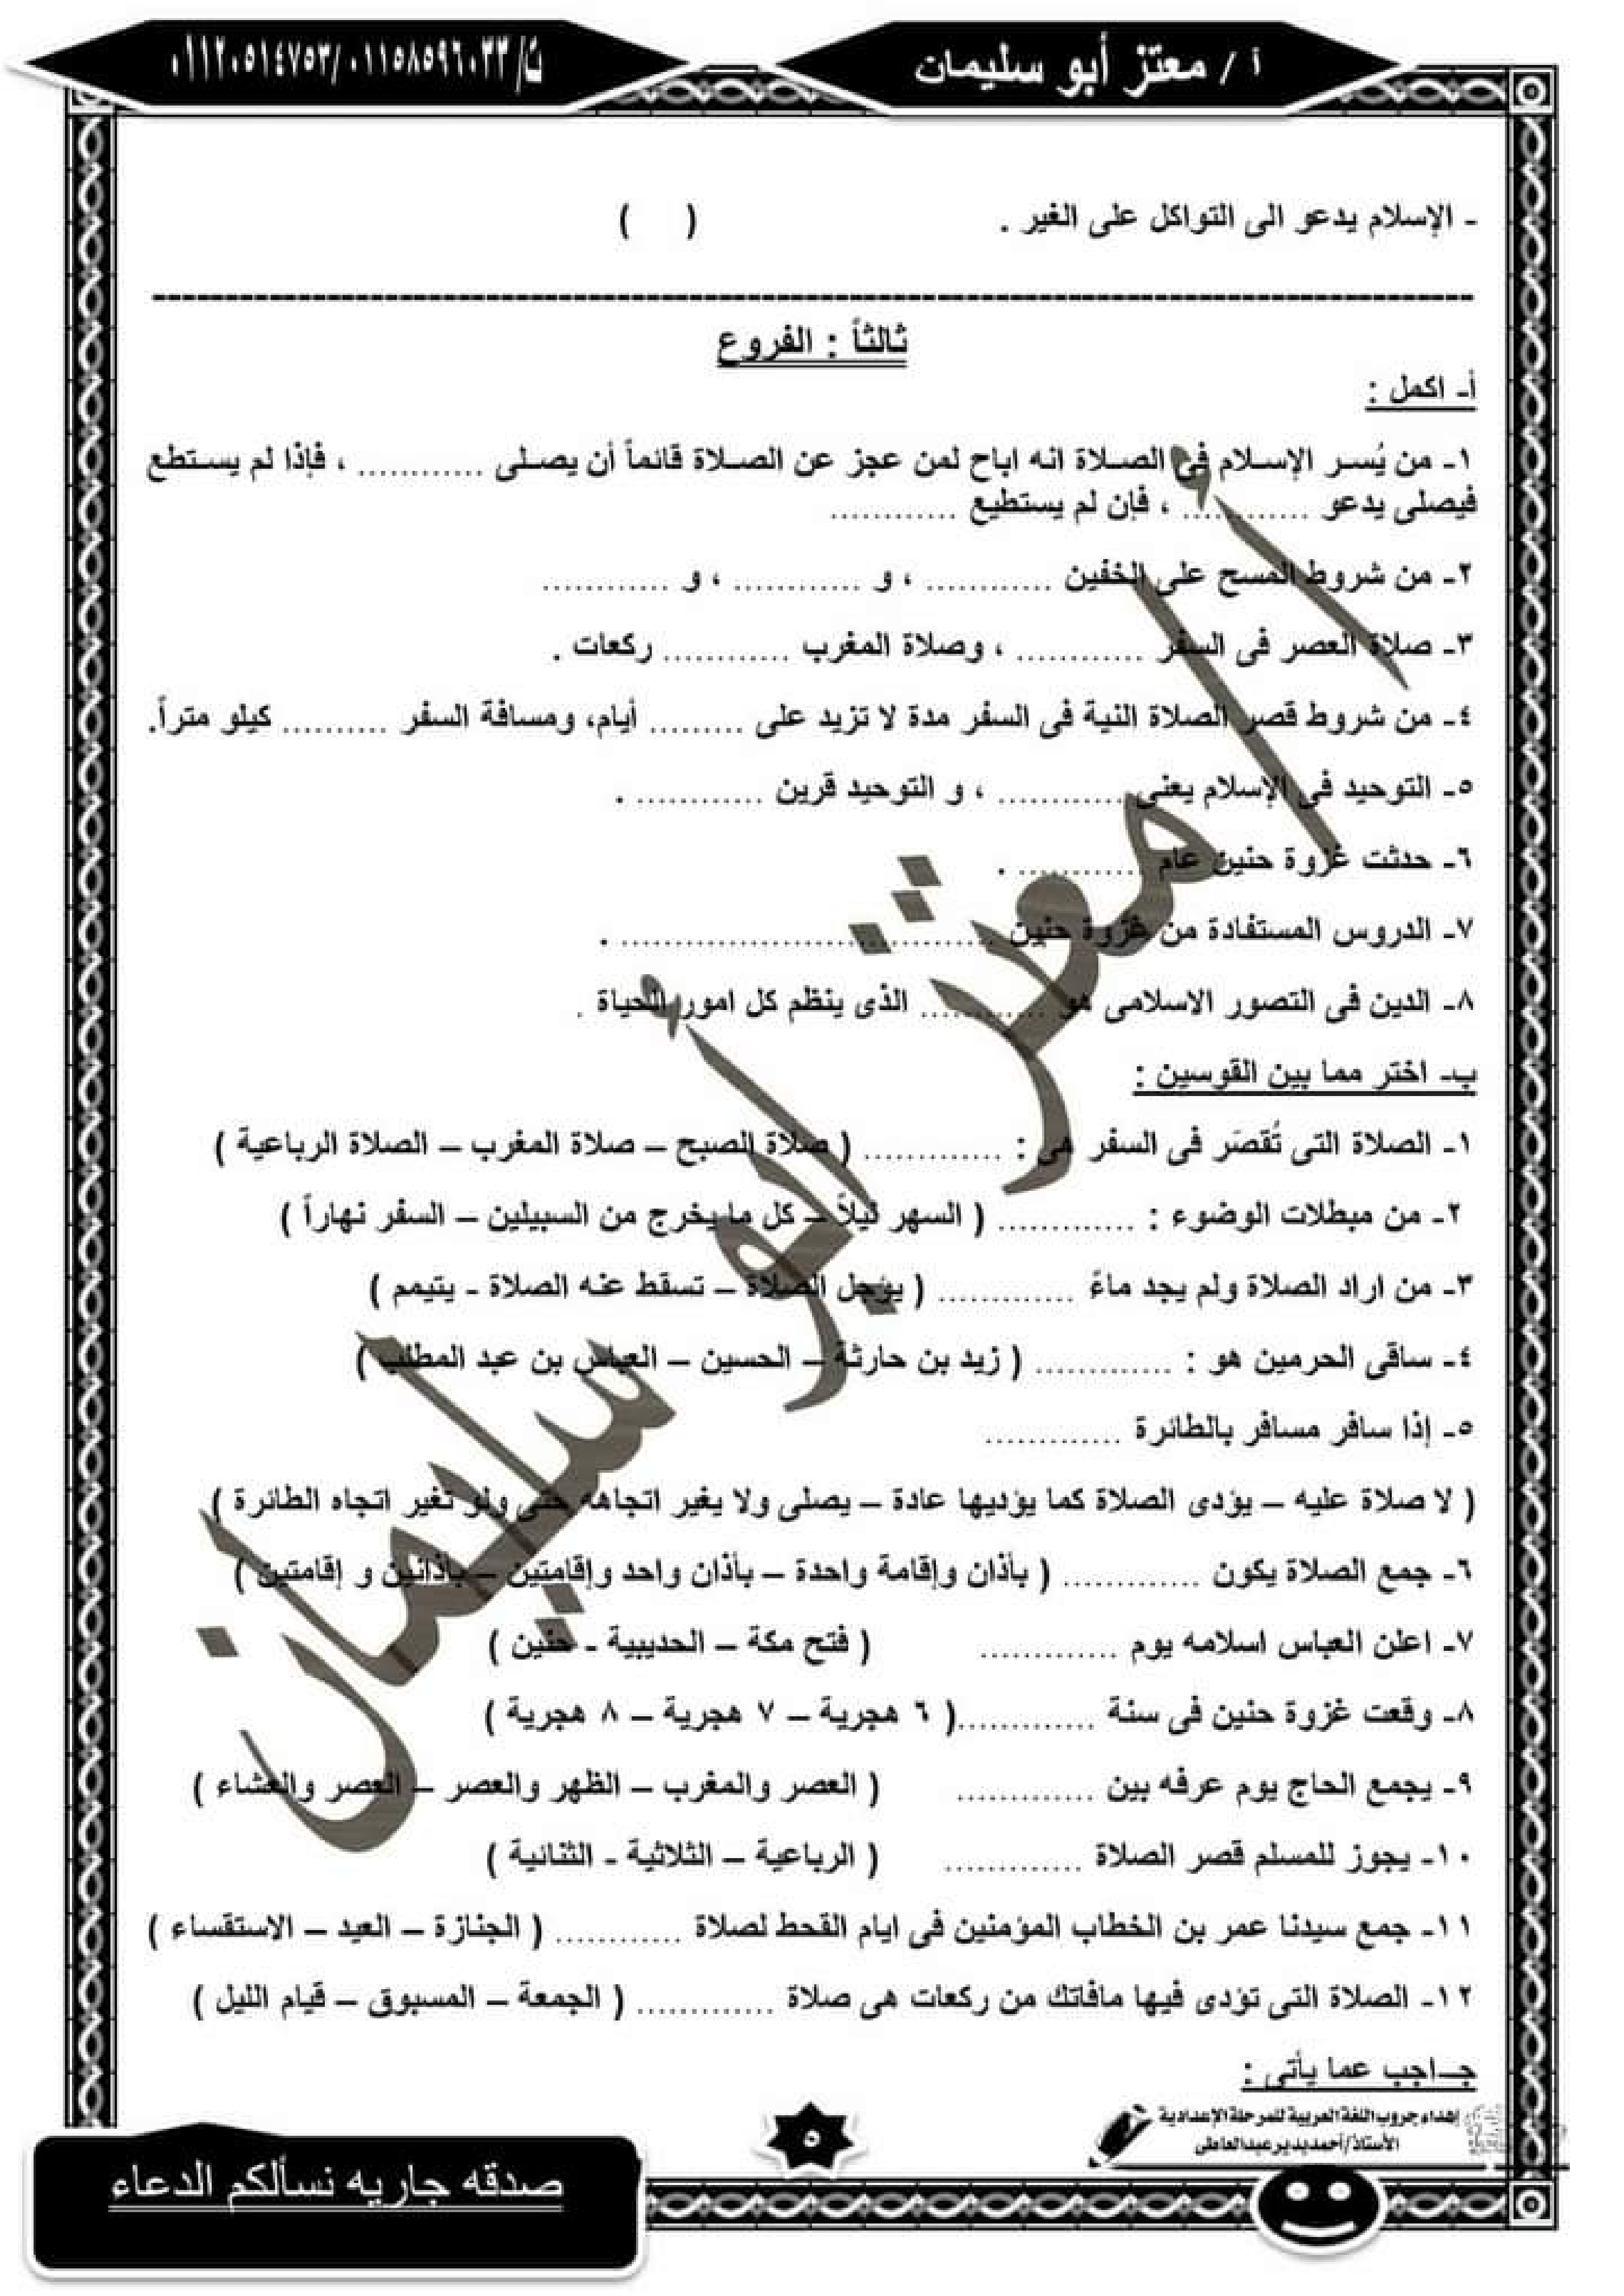 أ / معتز أبو سليمان
ت/ ٠١١٥٨٥٩٦٠٣٣ /٠١١٢٠٥١٤٧٥٣
- الإسلام يدعو الى التواكل على الغير . ( )
ثالثاً : الفروع
أ- اكمل :
١- من يُسر الإسلام فى الصلاة انه اباح لمن عجز عن الصلاة قائماً أن يصلى ............ ، فإذا لم يستطع
فيصلى يدعو ............ ، فإن لم يستطيع ............
٢- من شروط المسح على الخفين ............ ، و ............ ، و ............
٣- صلاة العصر فى السفر ............ ، وصلاة المغرب ............ ركعات .
٤- من شروط قصر الصلاة النية فى السفر مدة لا تزيد على ......... أيام، ومسافة السفر .......... كيلو متراً.
٥- التوحيد فى الإسلام يعنى ............ ، و التوحيد قرين ............ .
٦- حدثت غزوة حنين عام ............ .
٧- الدروس المستفادة من غزوة حنين .................................... .
٨- الدين فى التصور الاسلامى هو ............ الذى ينظم كل امور الحياة .
ب- اختر مما بين القوسين :
١- الصلاة التى تُقصَر فى السفر هى : ............. ( صلاة الصبح – صلاة المغرب – الصلاة الرباعية )
٢- من مبطلات الوضوء : ............. ( السهر ليلاً – كل ما يخرج من السبيلين – السفر نهاراً )
٣- من اراد الصلاة ولم يجد ماءً ............. ( يؤجل الصلاة – تسقط عنه الصلاة - يتيمم )
٤- ساقى الحرمين هو : ............. ( زيد بن حارثة – الحسين – العباس بن عبد المطلب )
٥- إذا سافر مسافر بالطائرة .............
( لا صلاة عليه – يؤدى الصلاة كما يؤديها عادة – يصلى ولا يغير اتجاهه حتى ولو تغير اتجاه الطائرة )
٦- جمع الصلاة يكون ............. ( بأذان وإقامة واحدة – بأذان واحد وإقامتين – بأذانين و إقامتين )
٧- اعلن العباس اسلامه يوم ............. ( فتح مكة – الحديبية - حنين )
٨- وقعت غزوة حنين فى سنة .............( ٦ هجرية – ٧ هجرية – ٨ هجرية )
٩- يجمع الحاج يوم عرفه بين ............. ( العصر والمغرب – الظهر والعصر – العصر والعشاء )
١٠- يجوز للمسلم قصر الصلاة ............. ( الرباعية – الثلاثية - الثنائية )
١١- جمع سيدنا عمر بن الخطاب المؤمنين فى ايام القحط لصلاة ............ ( الجنازة – العيد – الاستقساء )
١٢- الصلاة التى تؤدى فيها مافاتك من ركعات هى صلاة ............. ( الجمعة – المسبوق – قيام الليل )
جـ-اجب عما يأتى :
أ/ معتز أبو سليمان
إهداء جروب اللغة العربية للمرحلة الإعدادية
الأستاذ/أحمد بدير عبدالعاطى
٥
صدقه جاريه نسألكم الدعاء